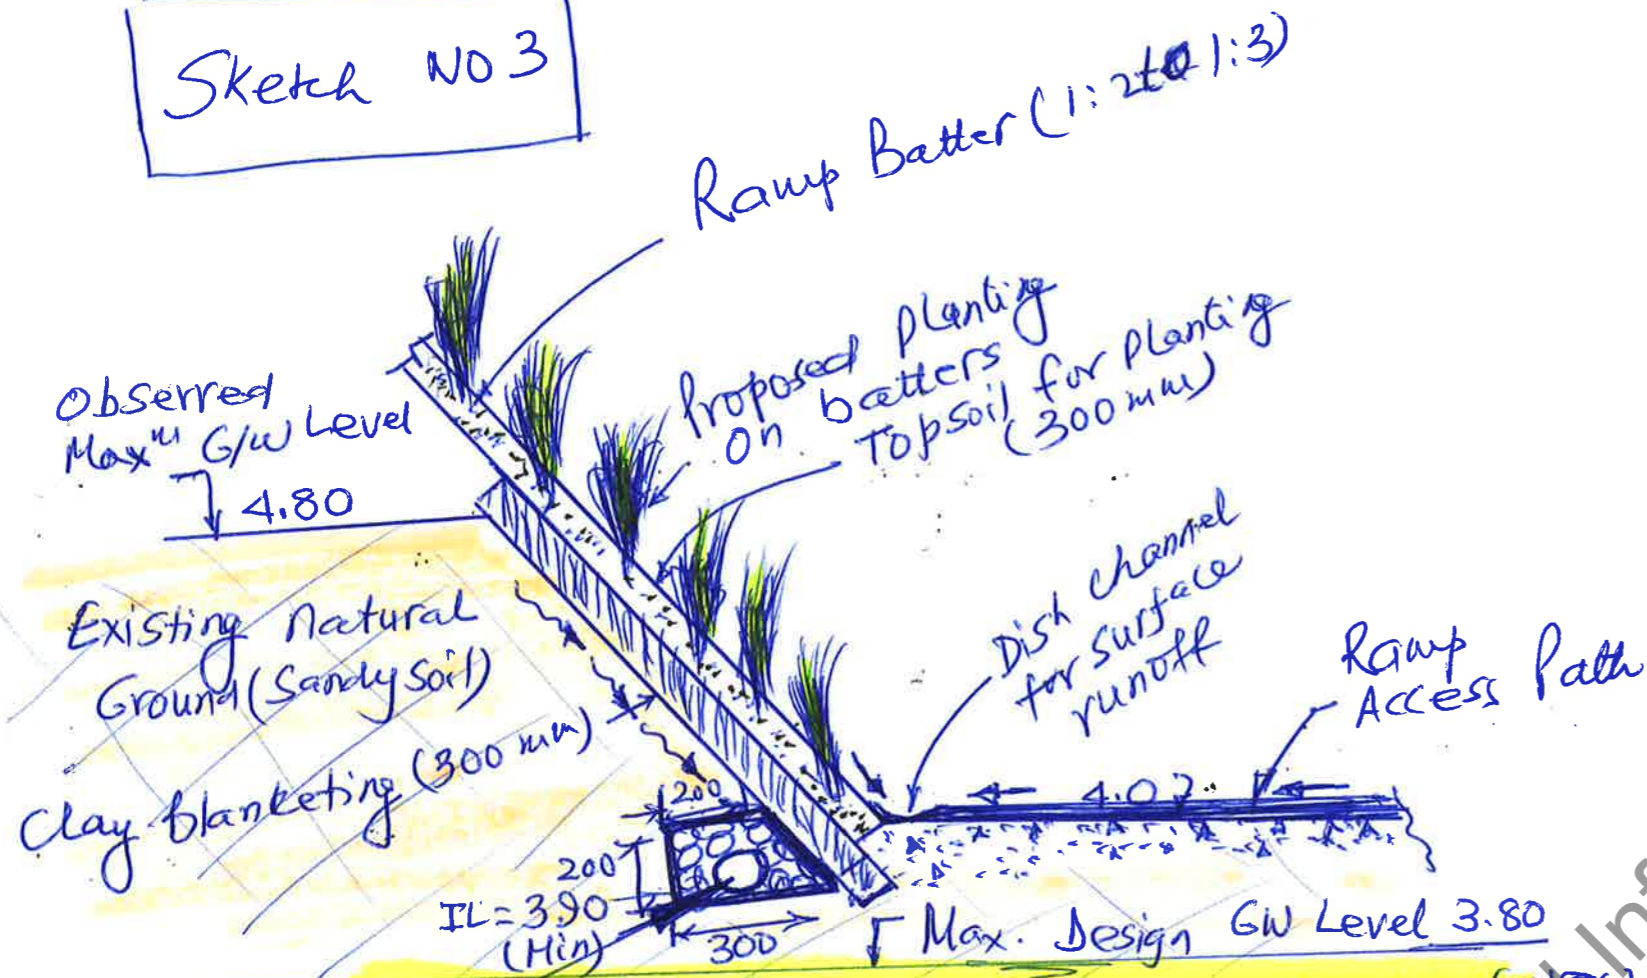 Sketch NO 3
Ramp Batter (1:2 to 1:3)
Proposed planting
on batters
Topsoil for planting
(300mm)
Observed
Maxᵐ G/W Level
4.80
Existing natural
Ground (Sandy Soil)
Clay blanketing (300 mm)
Dish channel
for surface
runoff
Ramp
Access Path
200
200
IL = 3.90
(Min)
300
Max. Design GW Level 3.80